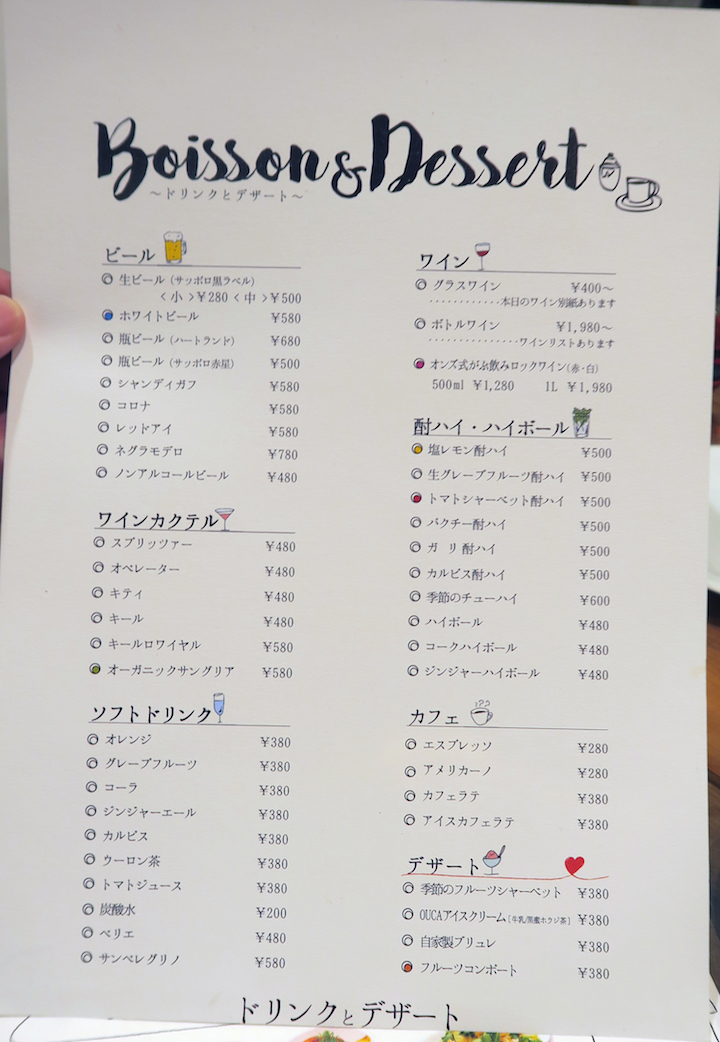 Boisson & Dessert
～ドリンクとデザート～
ビール
生ビール（サッポロ黒ラベル）
＜小＞¥280＜中＞¥500
ホワイトビール ¥580
瓶ビール（ハートランド） ¥680
瓶ビール（サッポロ赤星） ¥500
シャンディガフ ¥580
コロナ ¥580
レッドアイ ¥580
ネグラモデロ ¥780
ノンアルコールビール ¥480
ワインカクテル
スプリッツァー ¥480
オペレーター ¥480
キティ ¥480
キール ¥480
キールロワイヤル ¥580
オーガニックサングリア ¥580
ソフトドリンク
オレンジ ¥380
グレープフルーツ ¥380
コーラ ¥380
ジンジャーエール ¥380
カルピス ¥380
ウーロン茶 ¥380
トマトジュース ¥380
炭酸水 ¥200
ペリエ ¥480
サンペレグリノ ¥580
ワイン
グラスワイン ¥400～
············本日のワイン別紙あります
ボトルワイン ¥1,980～
···············ワインリストあります
オンズ式がぶ飲みロックワイン(赤・白)
500ml ¥1,280 1L ¥1,980
酎ハイ・ハイボール
塩レモン酎ハイ ¥500
生グレープフルーツ酎ハイ ¥500
トマトシャーベット酎ハイ ¥500
パクチー酎ハイ ¥500
ガリ酎ハイ ¥500
カルピス酎ハイ ¥500
季節のチューハイ ¥600
ハイボール ¥480
コークハイボール ¥480
ジンジャーハイボール ¥480
カフェ
エスプレッソ ¥280
アメリカーノ ¥280
カフェラテ ¥380
アイスカフェラテ ¥380
デザート
季節のフルーツシャーベット ¥380
OUCAアイスクリーム［牛乳/黒蜜ホウジ茶］ ¥380
自家製ブリュレ ¥380
フルーツコンポート ¥380
ドリンクとデザート